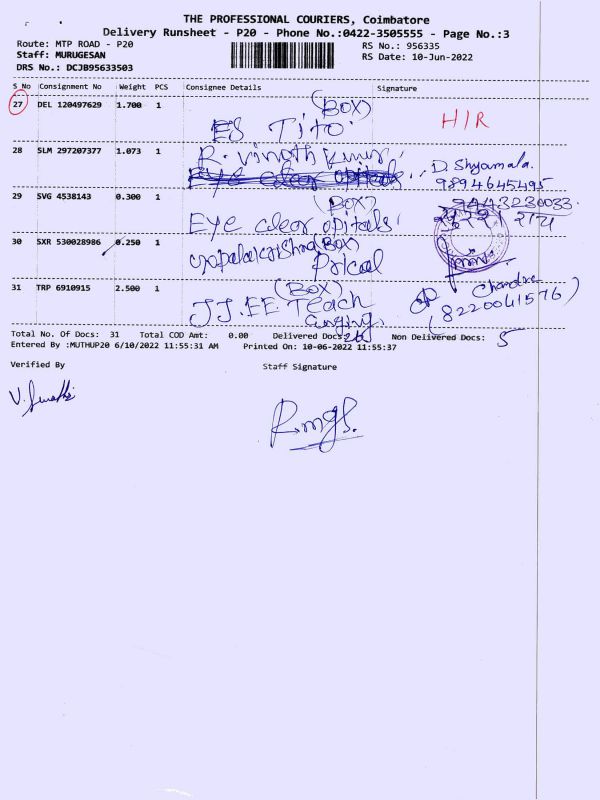 THE PROFESSIONAL COURIERS, Coimbatore
Delivery Runsheet - P20 - Phone No.:0422-3505555 - Page No.:3
Route: MTP ROAD - P20
RS No.: 956335
Staff: MURUGESAN
RS Date: 10-Jun-2022
DRS No.: DCJB95633503
S No Consignment No Weight PCS Consignee Details Signature
27 DEL 120497629 1.700 1 (BOX)
ES Tito
H/R
28 SLM 297207377 1.073 1 R. Vinoth Kumar
Eye clear opitals
D. Shyamala.
9894645495
29 SVG 4538143 0.300 1 (BOX)
9443230033
Eye clear opitals
30 SXR 530028986 0.250 1 (Box)
Pricol
31 TRP 6910915 2.500 1 (BOX)
JJ.EE Teach
Chandra
(8220041576)
Total No. Of Docs: 31 Total COD Amt: 0.00 Delivered Docs: 26 Non Delivered Docs: 5
Entered By :MUTHUP20 6/10/2022 11:55:31 AM Printed On: 10-06-2022 11:55:37
Verified By Staff Signature